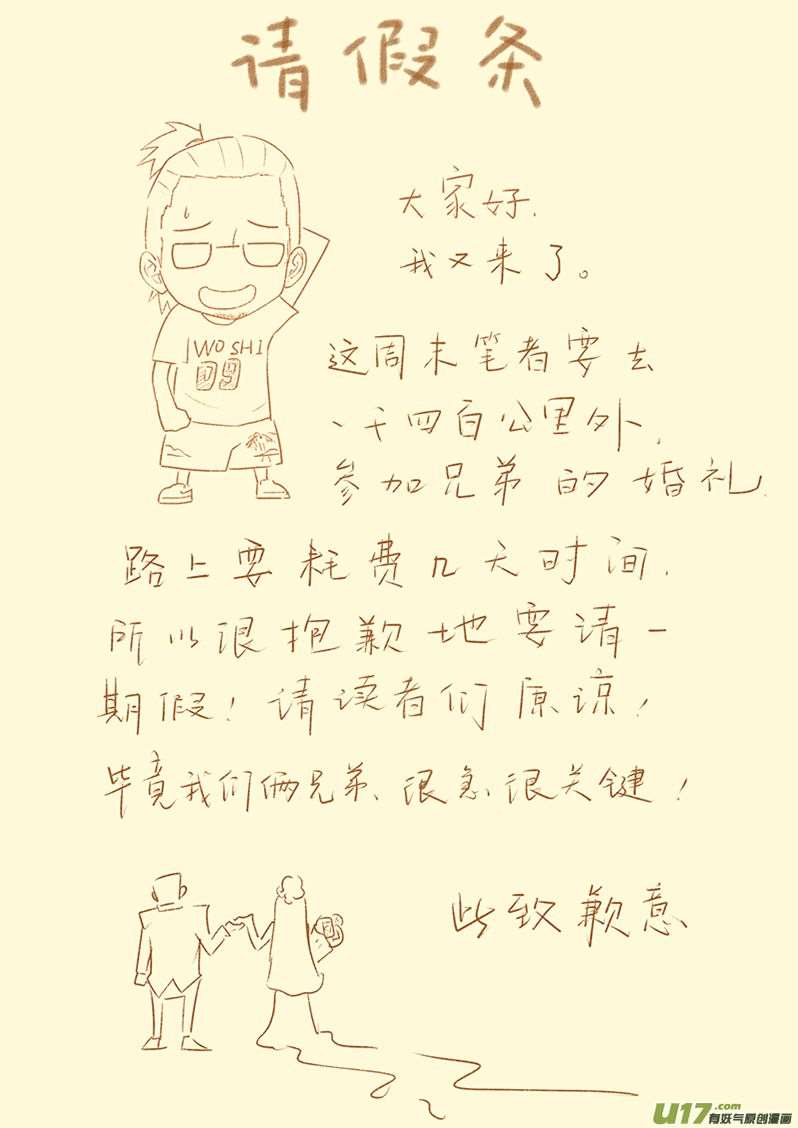 请假条
大家好，
我又来了。
WO SHI
09
这周末笔者要去
一千四百公里外，
参加兄弟的婚礼，
路上要耗费几天时间，
所以很抱歉地要请一
期假！请读者们原谅！
毕竟我们俩兄弟、很急很关键！
此致歉意
U17.com
有妖气原创漫画